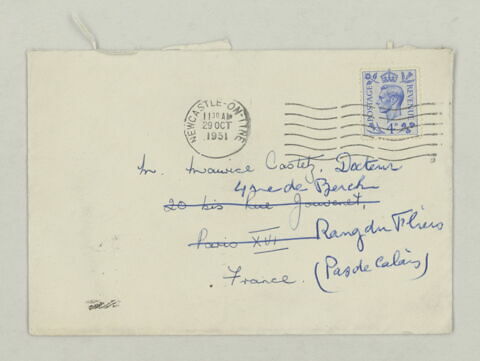 NEWCASTLE-ON-TYNE
11 30 AM
29 OCT
1951
POSTAGE REVENUE
4D
M. Maurice Castetz, Docteur
4 rue de Berck
20 bis Rue Jouvenet,
Paris XVI Rang du Fliers
France. (Pas de Calais)